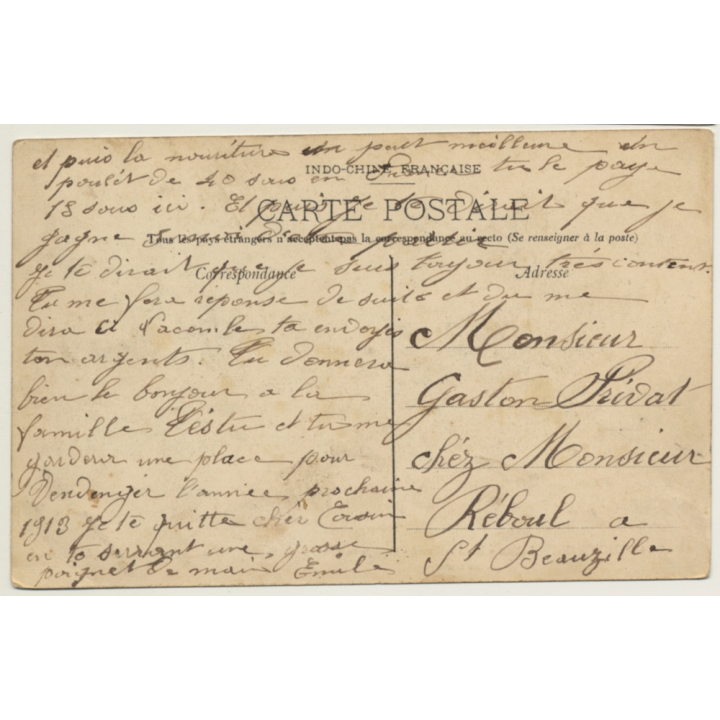 et puis la nourriture un peut meilleure un
INDO-CHINE FRANÇAISE
poulét de 40 sous en tu le paye
18 sous ici. Et puis je te dirait que je
CARTE POSTALE
gagne
Tous les pays étrangers n'acceptent pas la correspondance au recto (Se renseigner à la poste)
je te dirait que je suis toujour trés content.
Correspondance
Adresse
Tu me fera reponse de suite et du me
dira si Lacombe ta envoyis
ton argents. Tu donnera
bien le bonjour a la
famille et tu me
gardera une place pour
Vendenger l'année prochaine
1913 je te quitte cher Cousin
en te serrant une grosse
poignet de main Émile
Monsieur
Gaston Privat
chéz Monsieur
Réboul a
St Beauzille